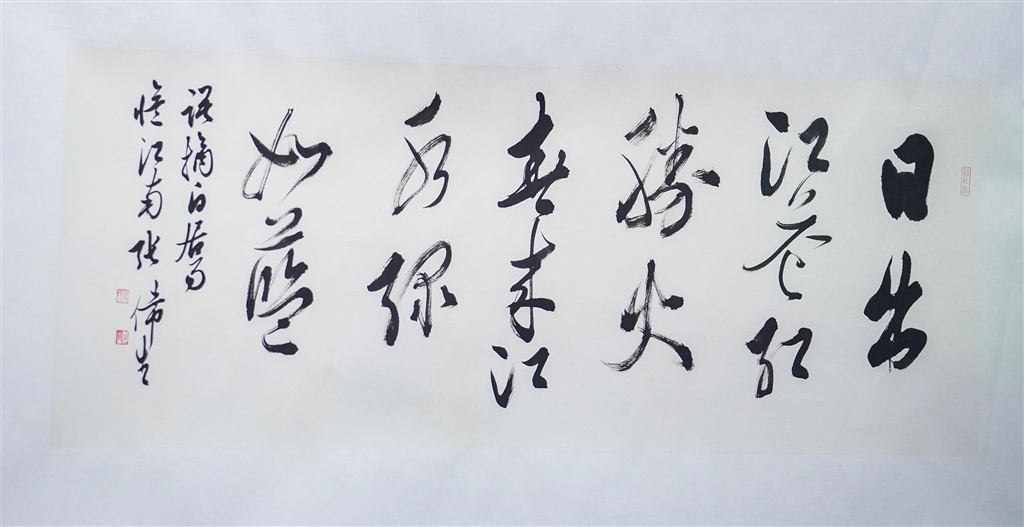 日出
江花红
勝火
春来江
水绿
如蓝
语摘白居易
忆江南张伟生